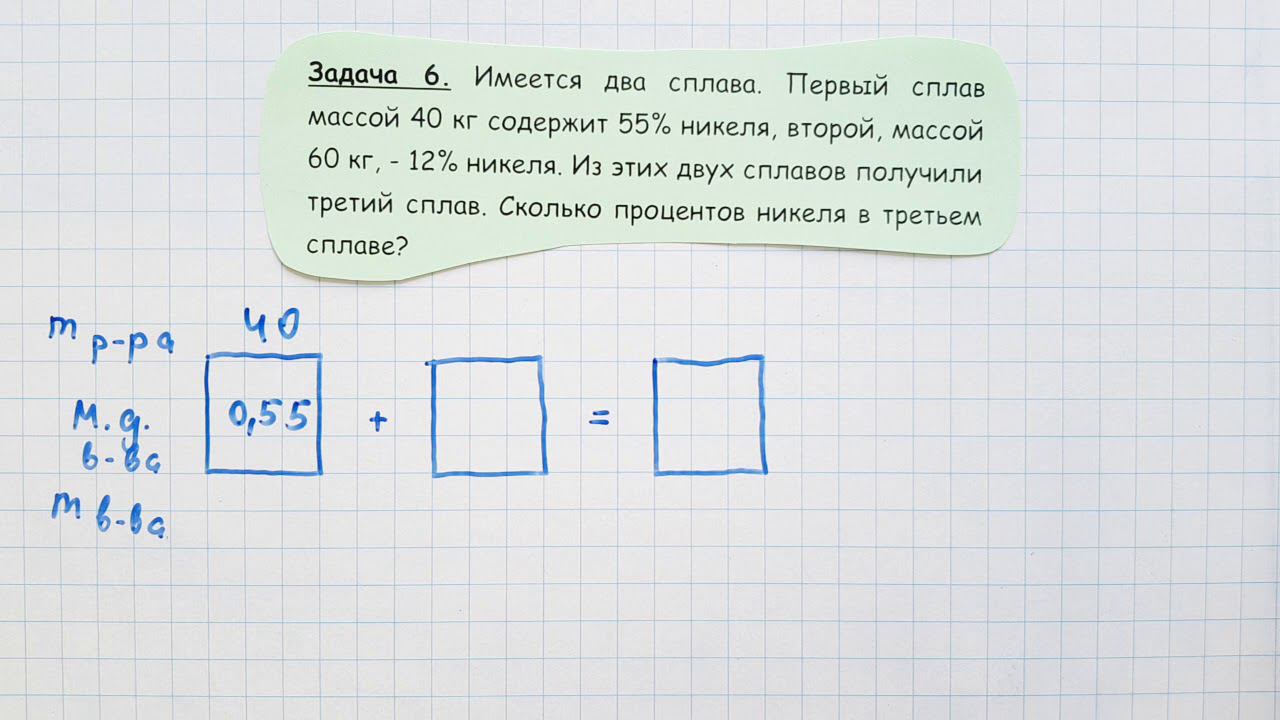 Задача 6. Имеется два сплава. Первый сплав
массой 40 кг содержит 55% никеля, второй, массой
60 кг, - 12% никеля. Из этих двух сплавов получили
третий сплав. Сколько процентов никеля в третьем
сплаве?
m р-ра 40
м.д. 0,55 + =
в-ва
m в-ва